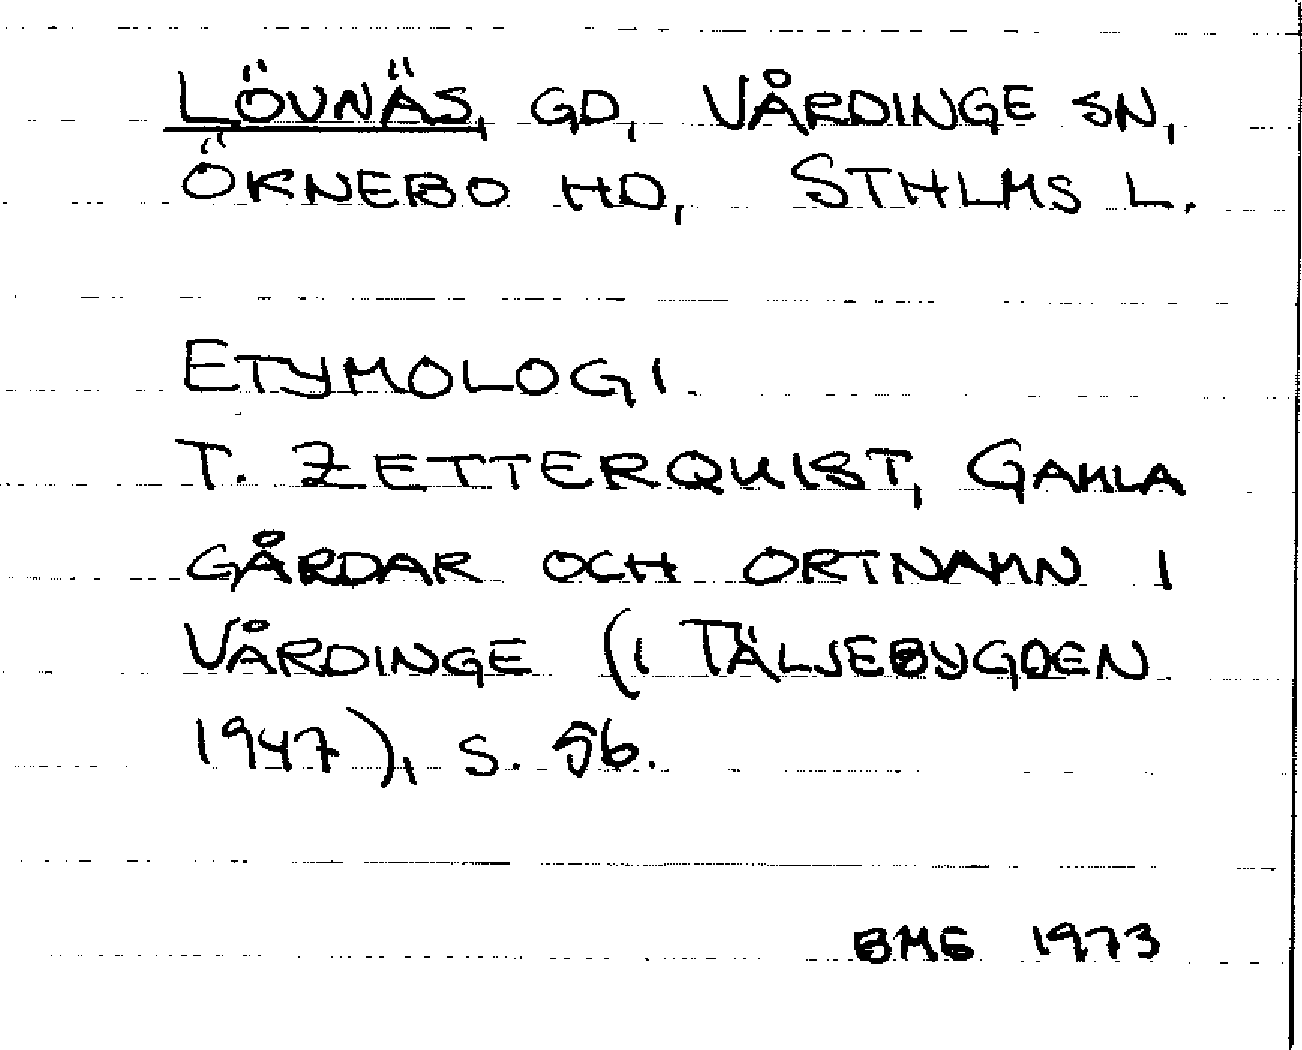 LÖVNÄS, GD, VÅRDINGE SN,
ÖKNEBO HD, STHLMS L.
ETYMOLOGI.
T. ZETTERQUIST, GAMLA
GÅRDAR OCH ORTNAMN I
VÅRDINGE (I TÄLJEBYGDEN
1947), S. 56.
BMS 1973